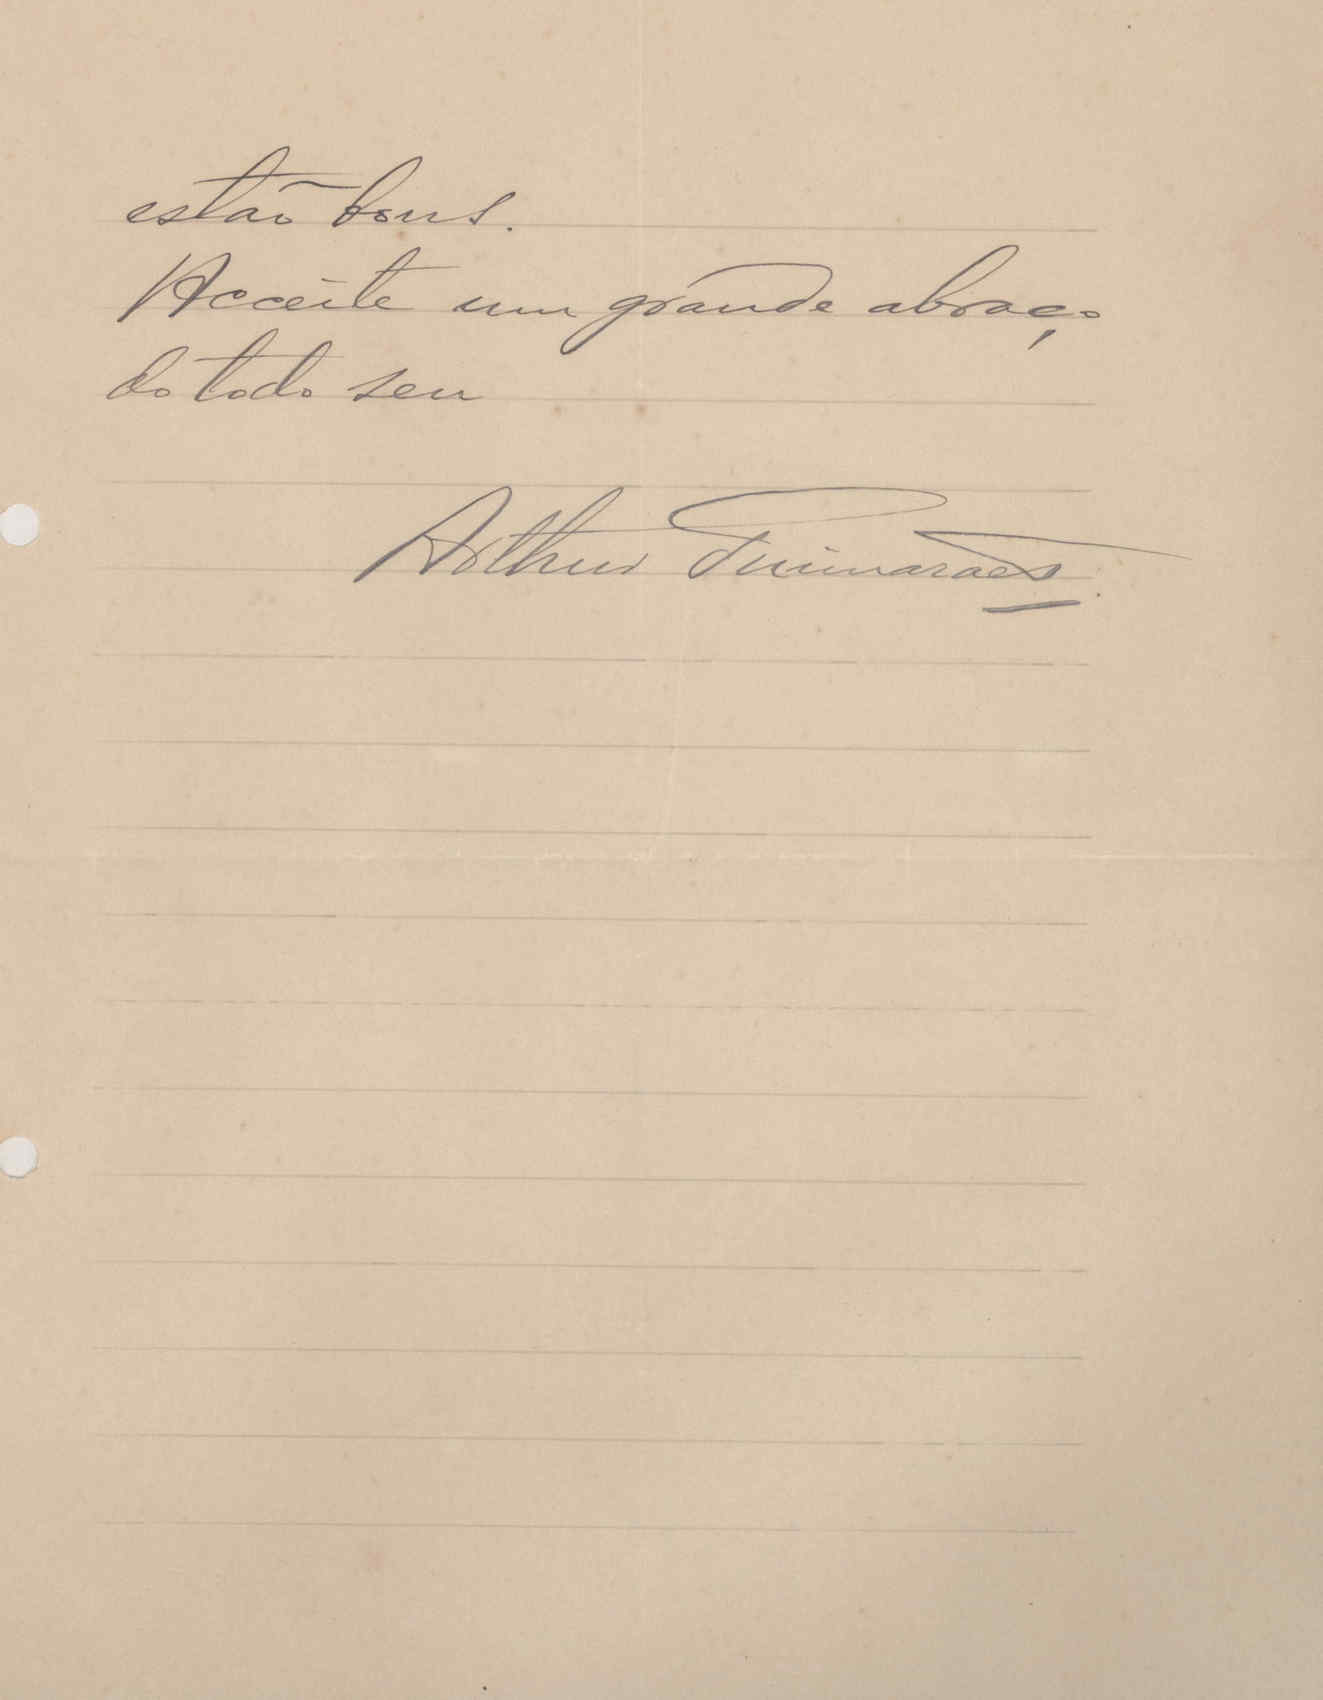 estaõ bons.
Acceite um grande abraço
do todo seu
Arthur Guimaraes